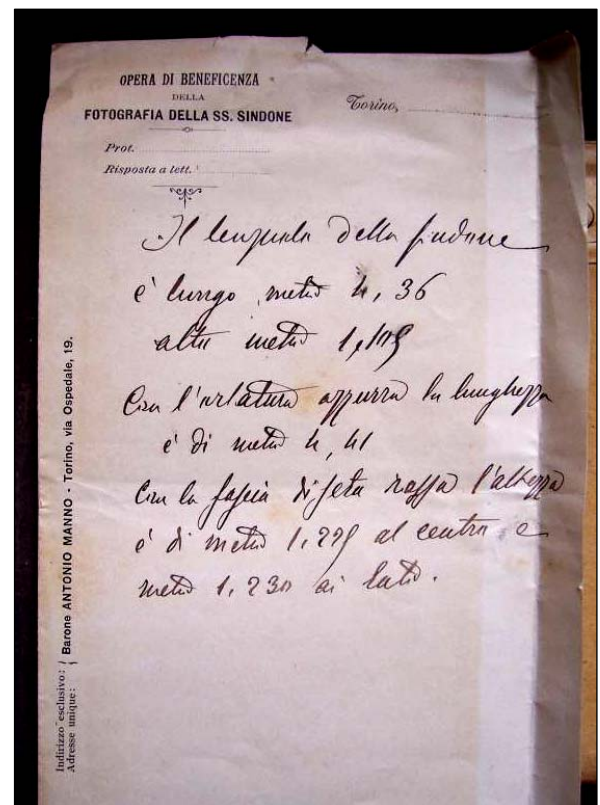 OPERA DI BENEFICENZA
DELLA
FOTOGRAFIA DELLA SS. SINDONE
Torino,
Prot.
Risposta a lett.
Il lenzuolo della sindone
è lungo metri 4, 36
alto metri
Con l'orlatura azzurra la lunghezza
è di metri 4, 41
Con la fascia di seta rossa l'altezza
è di metri al centro e
metri 1. 230 ai lati.
Indirizzo esclusivo:
Adresse unique:
Barone ANTONIO MANNO - Torino, via Ospedale, 19.